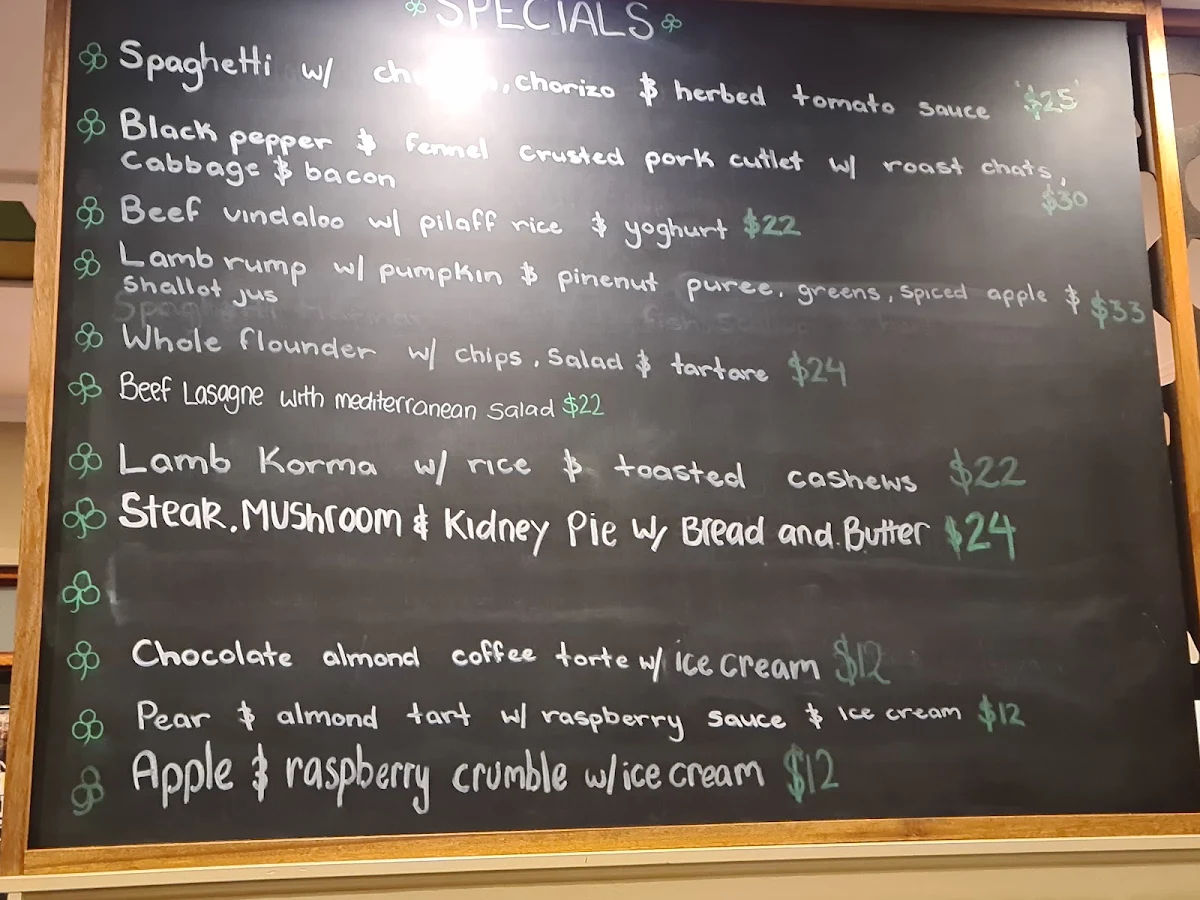 SPECIALS
Spaghetti w/ , chorizo & herbed tomato sauce $25
Black pepper & fennel crusted pork cutlet w/ roast chats,
Cabbage & bacon $30
Beef vindaloo w/ pilaff rice & yoghurt $22
Lamb rump w/ pumpkin & pinenut puree, greens, spiced apple &
shallot jus $33
Whole flounder w/ chips, salad & tartare $24
Beef Lasagne with mediterranean salad $22
Lamb Korma w/ rice & toasted cashews $22
Steak, MUShroom & Kidney Pie w/ Bread and Butter $24
Chocolate almond coffee torte w/ ice cream $12
Pear & almond tart w/ raspberry sauce & ice cream $12
Apple & raspberry crumble w/ ice cream $12